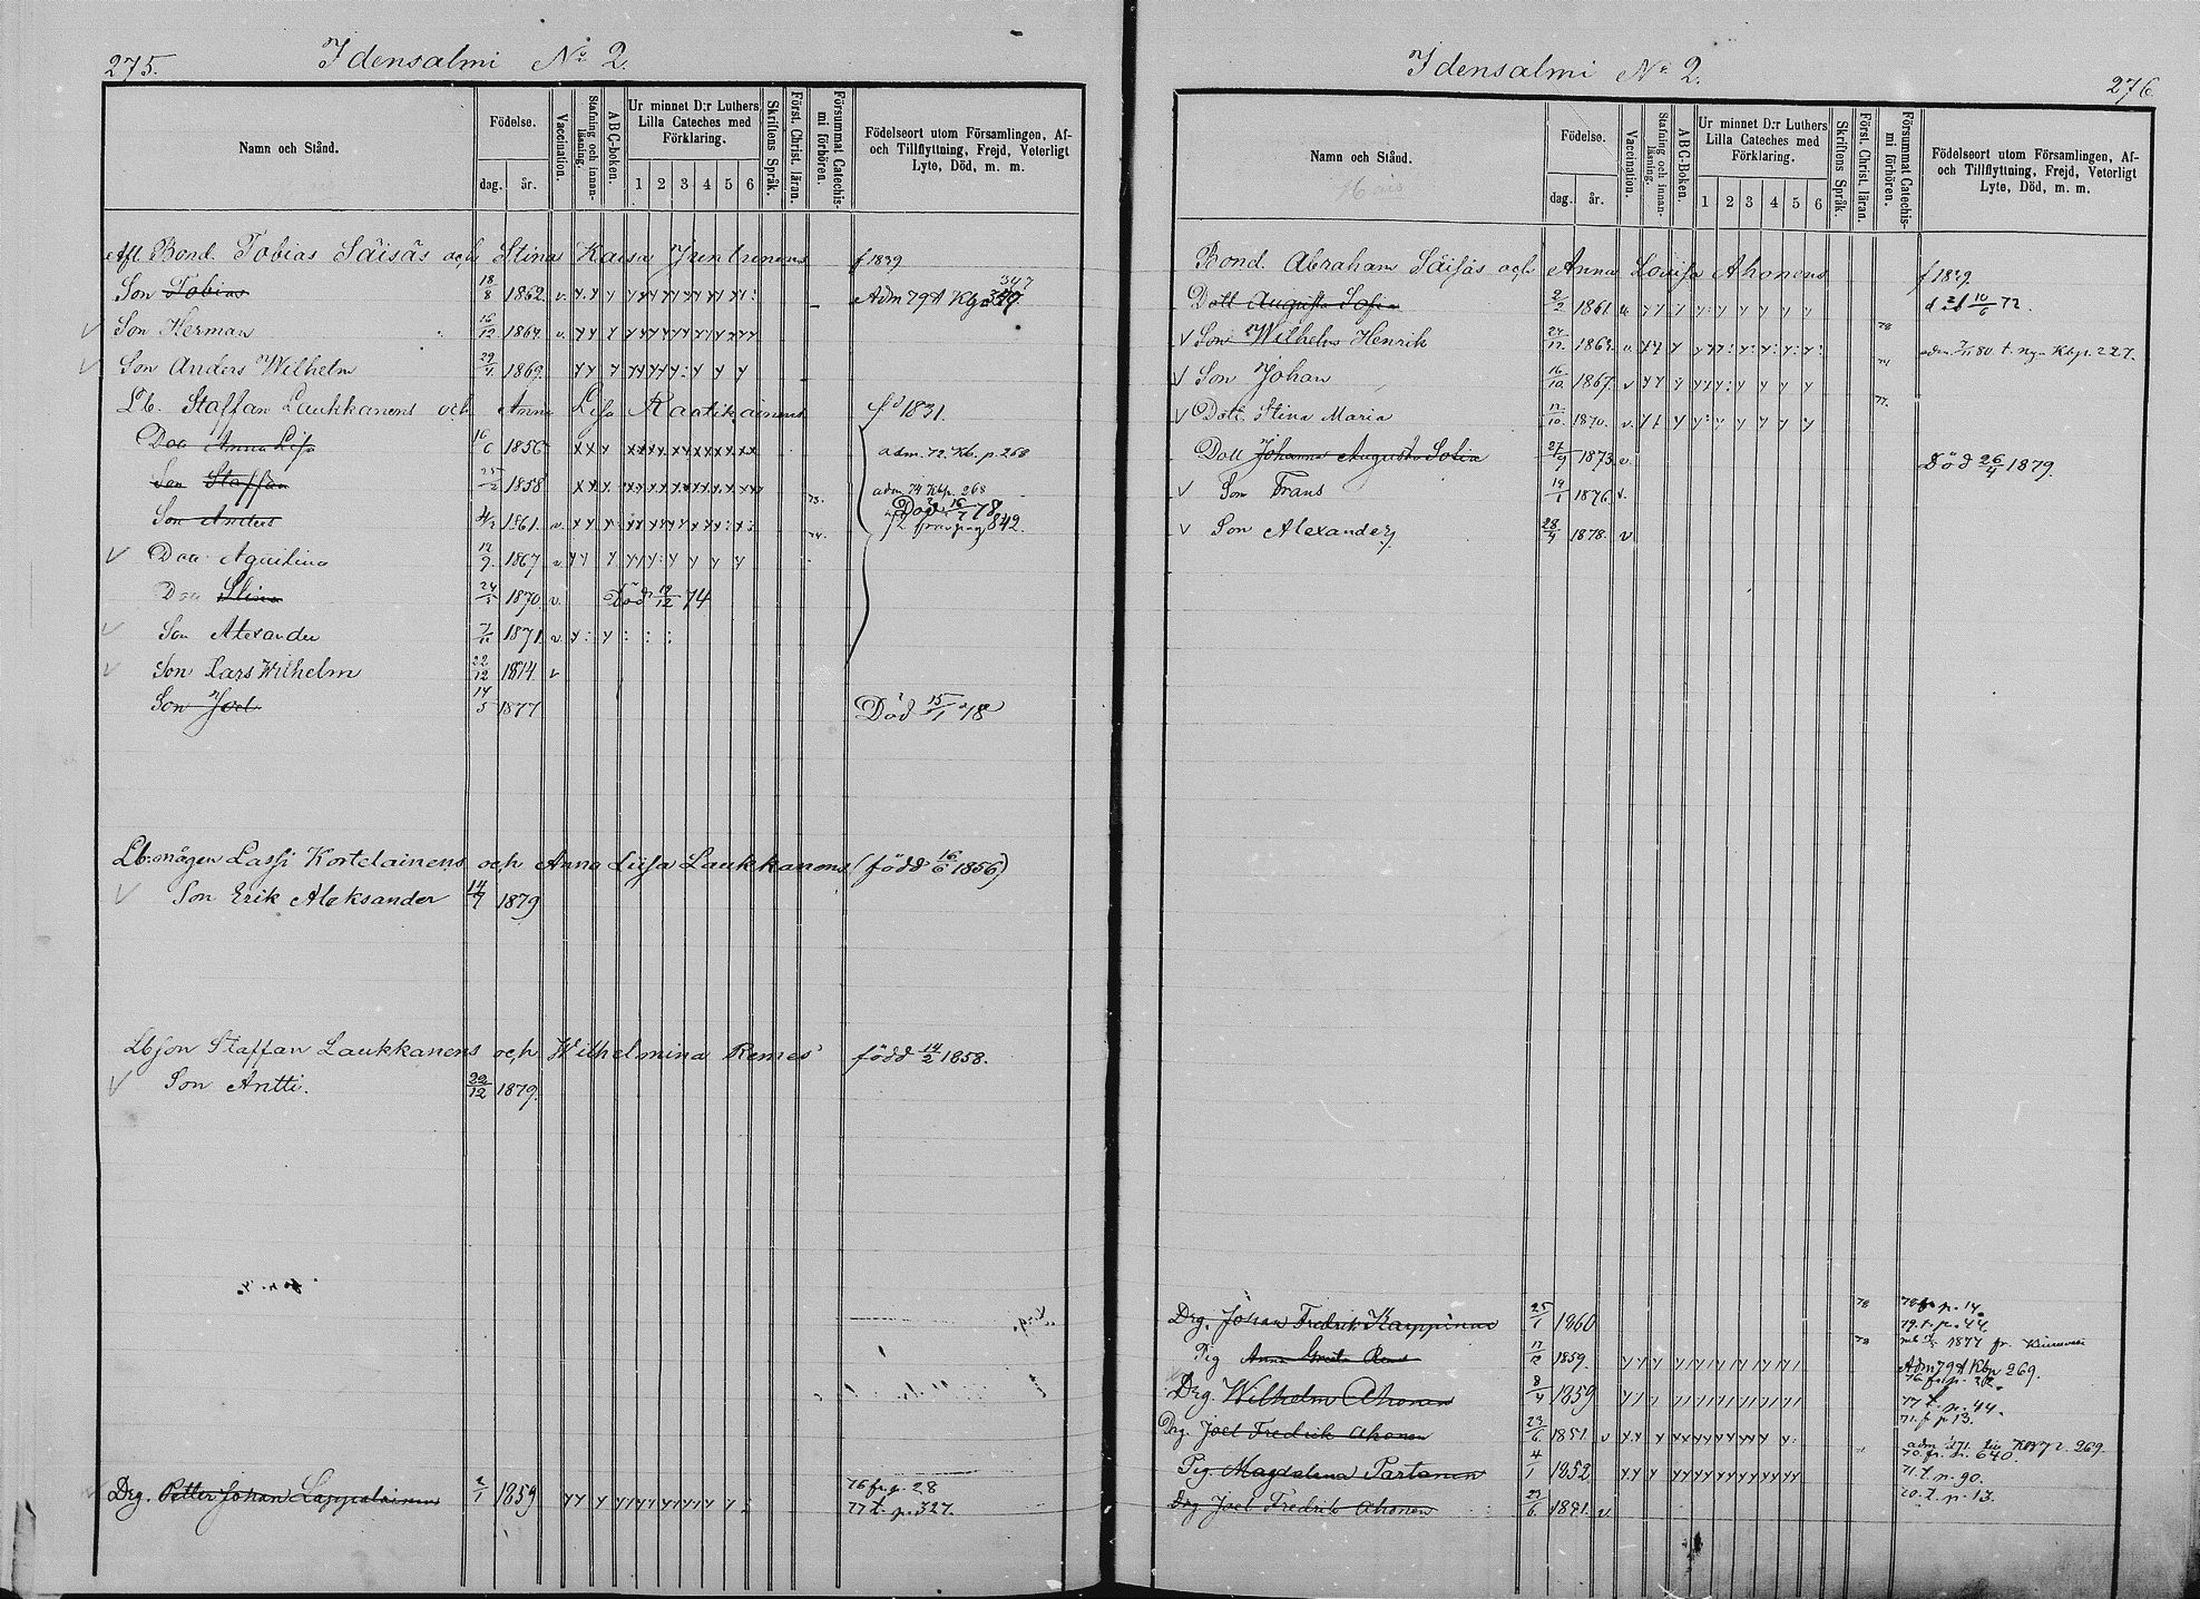 275.
Idensalmi No 2.
Namn och Stånd.
Födelse.
dag.
år.
Vaccination.
Stafning och innan-
läsning.
ABC-boken.
Ur minnet D:r Luthers
Lilla Cateches med
Förklaring.
1 2 3 4 5 6
Skriftens Språk.
Först. Christ. läran.
Försummat Catechis-
mi förhören.
Födelseort utom Församlingen, Af-
och Tillflyttning, Frejd, Veterligt
Lyte, Död, m. m.
Afl. Bond. Tobias Säisäs och Stina Kaisa f 1839
Son Tobias 18/8 1862. v. Adm 79 347
Son Herman 16/12 1864. v.
Son Anders Wilhelm 29/1 1869.
Lb. Staffan Laukkanens och Anna Lisa Raatikainens f. 1831.
Doa Anna Lisa 16/6 1856 adm. 72. Kb. p. 268
Son Staffan 1858 adm 74 Kbp. 268
Son Anders 1861. v. Död 16/7 78
från pag 842.
Doa Aqvilina 12/9 1867 v
Doa Stina 1870 v. Död 19/12 74
Son Alexander 1871. v
Son Lars Wilhelm 22/12 1874. v
Son Joel 14/5 1877 Död 15/1 78
Lb:mågen Lassi Kortelainens och Anna Liisa Laukkanens (född 16/6 1856)
Son Erik Aleksander 14/7 1879
Lbson Staffan Laukkanens och Wilhelmina Remes född 14/2 1858.
Son Antti. 22/12 1879.
Drg. Petter Johan Lappalainen 2/1 1859 76 fr. p. 28
77 t. p. 327.
276
Idensalmi No 2.
Namn och Stånd.
Födelse.
dag.
år.
Vaccination.
Stafning och innan-
läsning.
ABC-Boken.
Ur minnet D:r Luthers
Lilla Cateches med
Förklaring.
1 2 3 4 5 6
Skriftens Språk.
Först. Christ. läran.
Försummat Catechis-
mi förhören.
Födelseort utom Församlingen, Af-
och Tillflyttning, Frejd, Veterligt
Lyte, Död, m. m.
Bond. Abraham Säisäs och Anna Lovisa Ahonens f 1839.
Dott Augusta Sofia 2/2 1861 d 10/6 72.
Son Wilhelm Henrik 1863. v. 80. t. nya Kbp. 227.
Son Johan 16/10 1867 v
Dott. Stina Maria 1870. v.
Dott Johanna Augusta Sofia 27/9 1873. v. Död 26/4 1879.
Son Frans 19/1 1876 v.
Son Alexander 28/4 1878. v
Drg. Johan Fredrik Karppinen 25/1 1860 78 fr p. 14.
79. t. p. 44.
Pig Anna Greta 1859. 1877 fr.
Adm 79 Kbp 269.
Drg. Wilhelm Ahonen 8/4 1859
77 t. p. 44.
Drg. Joel Fredrik Ahonen 23/6 1851. v 71. f p 13.
Pig. Magdalena Partanen 4/1 1852 70. fr. p. 640.
71. t. p. 90.
Drg Joel Fredrik Ahonen 23/6 1851. v. 70. t. p. 13.